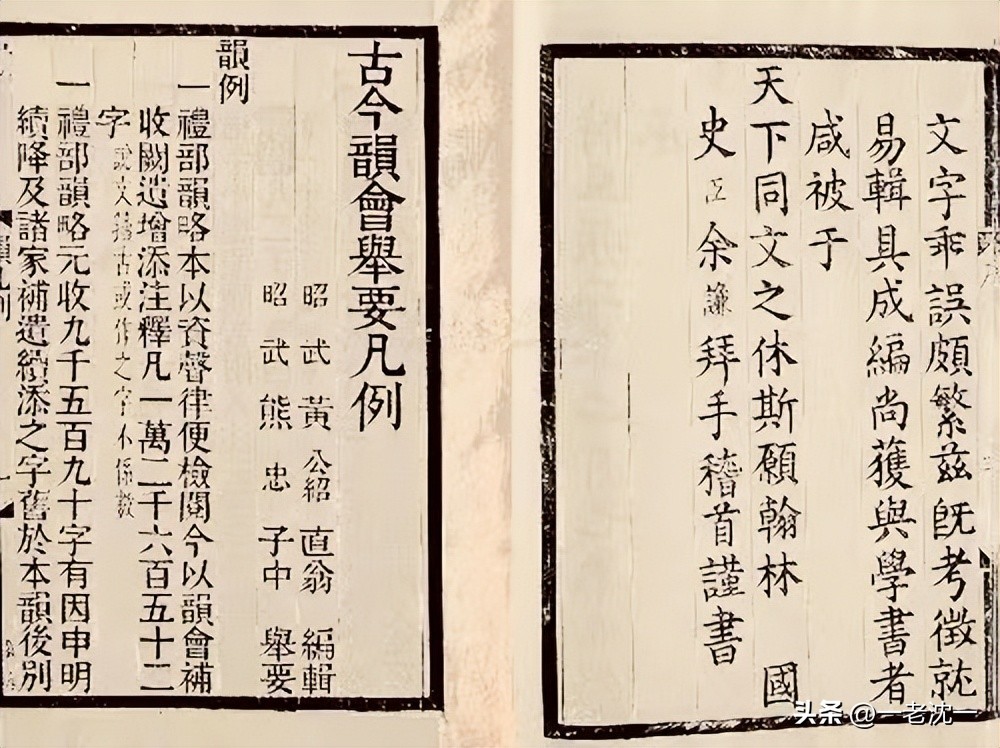 文字乖誤頗繁茲旣考徵就
易輯具成編尚獲與學書者
咸被于
天下同文之休斯願翰林 國
史臣余謙拜手稽首謹書
古今韻會舉要凡例
昭武黃公紹直翁編輯
昭武熊忠子中舉要
韻例
一禮部韻略本以資聲律便檢閱今以韻會補
收闕遺增添注釋凡一萬二千六百五十二
字說文籒古或俗之字不係數
一禮部韻略元收九千五百九十字有因申明
續降及諸家補遺續添之字舊於本韻後別
頭条@一老沈一